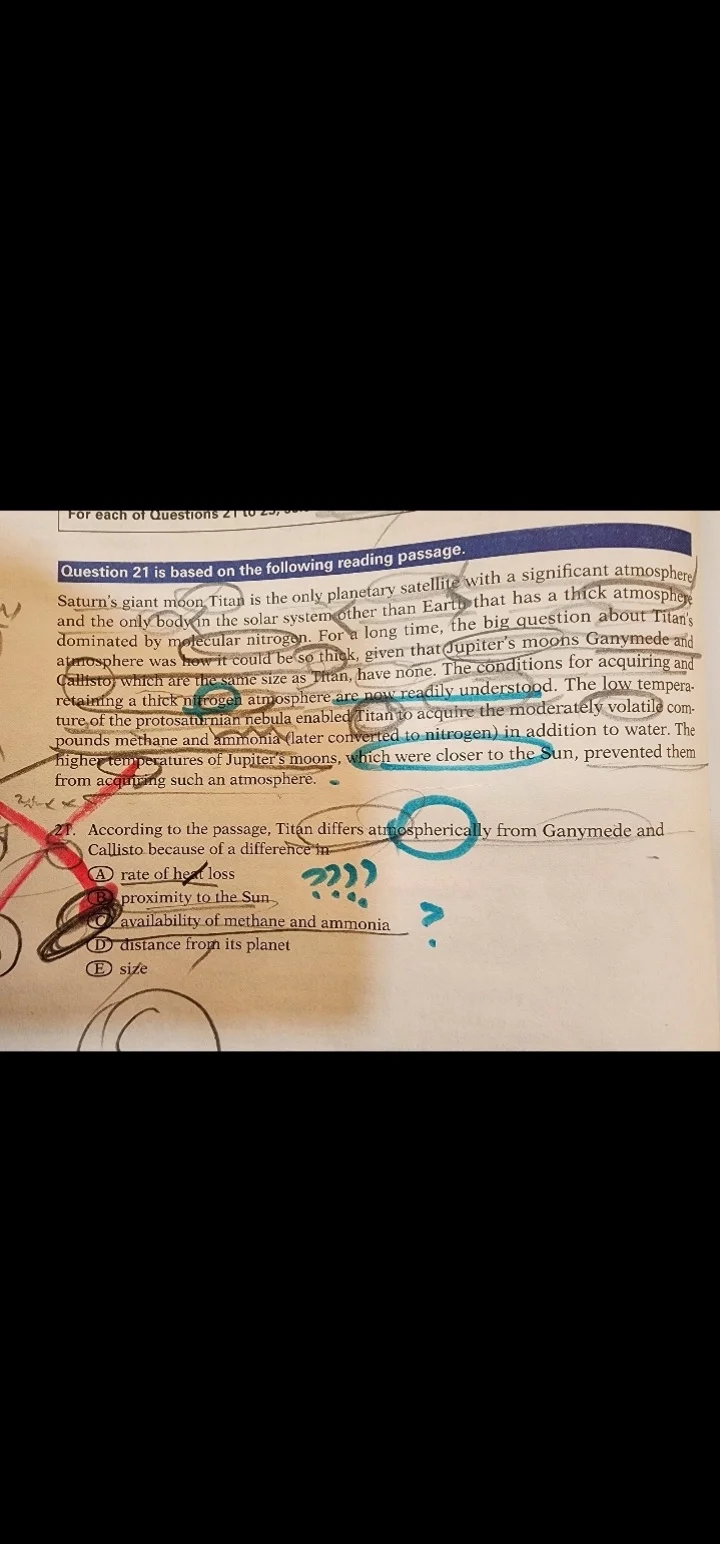 For each of Questions 21 to 25,
Question 21 is based on the following reading passage.
Saturn's giant moon Titan is the only planetary satellite with a significant atmosphere
and the only body in the solar system other than Earth that has a thick atmosphere
dominated by molecular nitrogen. For a long time, the big question about Titan's
atmosphere was how it could be so thick, given that Jupiter's moons Ganymede and
Callisto, which are the same size as Titan, have none. The conditions for acquiring and
retaining a thick nitrogen atmosphere are now readily understood. The low tempera-
ture of the protosaturnian nebula enabled Titan to acquire the moderately volatile com-
pounds methane and ammonia (later converted to nitrogen) in addition to water. The
higher temperatures of Jupiter's moons, which were closer to the Sun, prevented them
from acquiring such an atmosphere.
21. According to the passage, Titan differs atmospherically from Ganymede and
Callisto because of a difference in
A rate of heat loss ????
B proximity to the Sun
C availability of methane and ammonia ?
D distance from its planet
E size
C